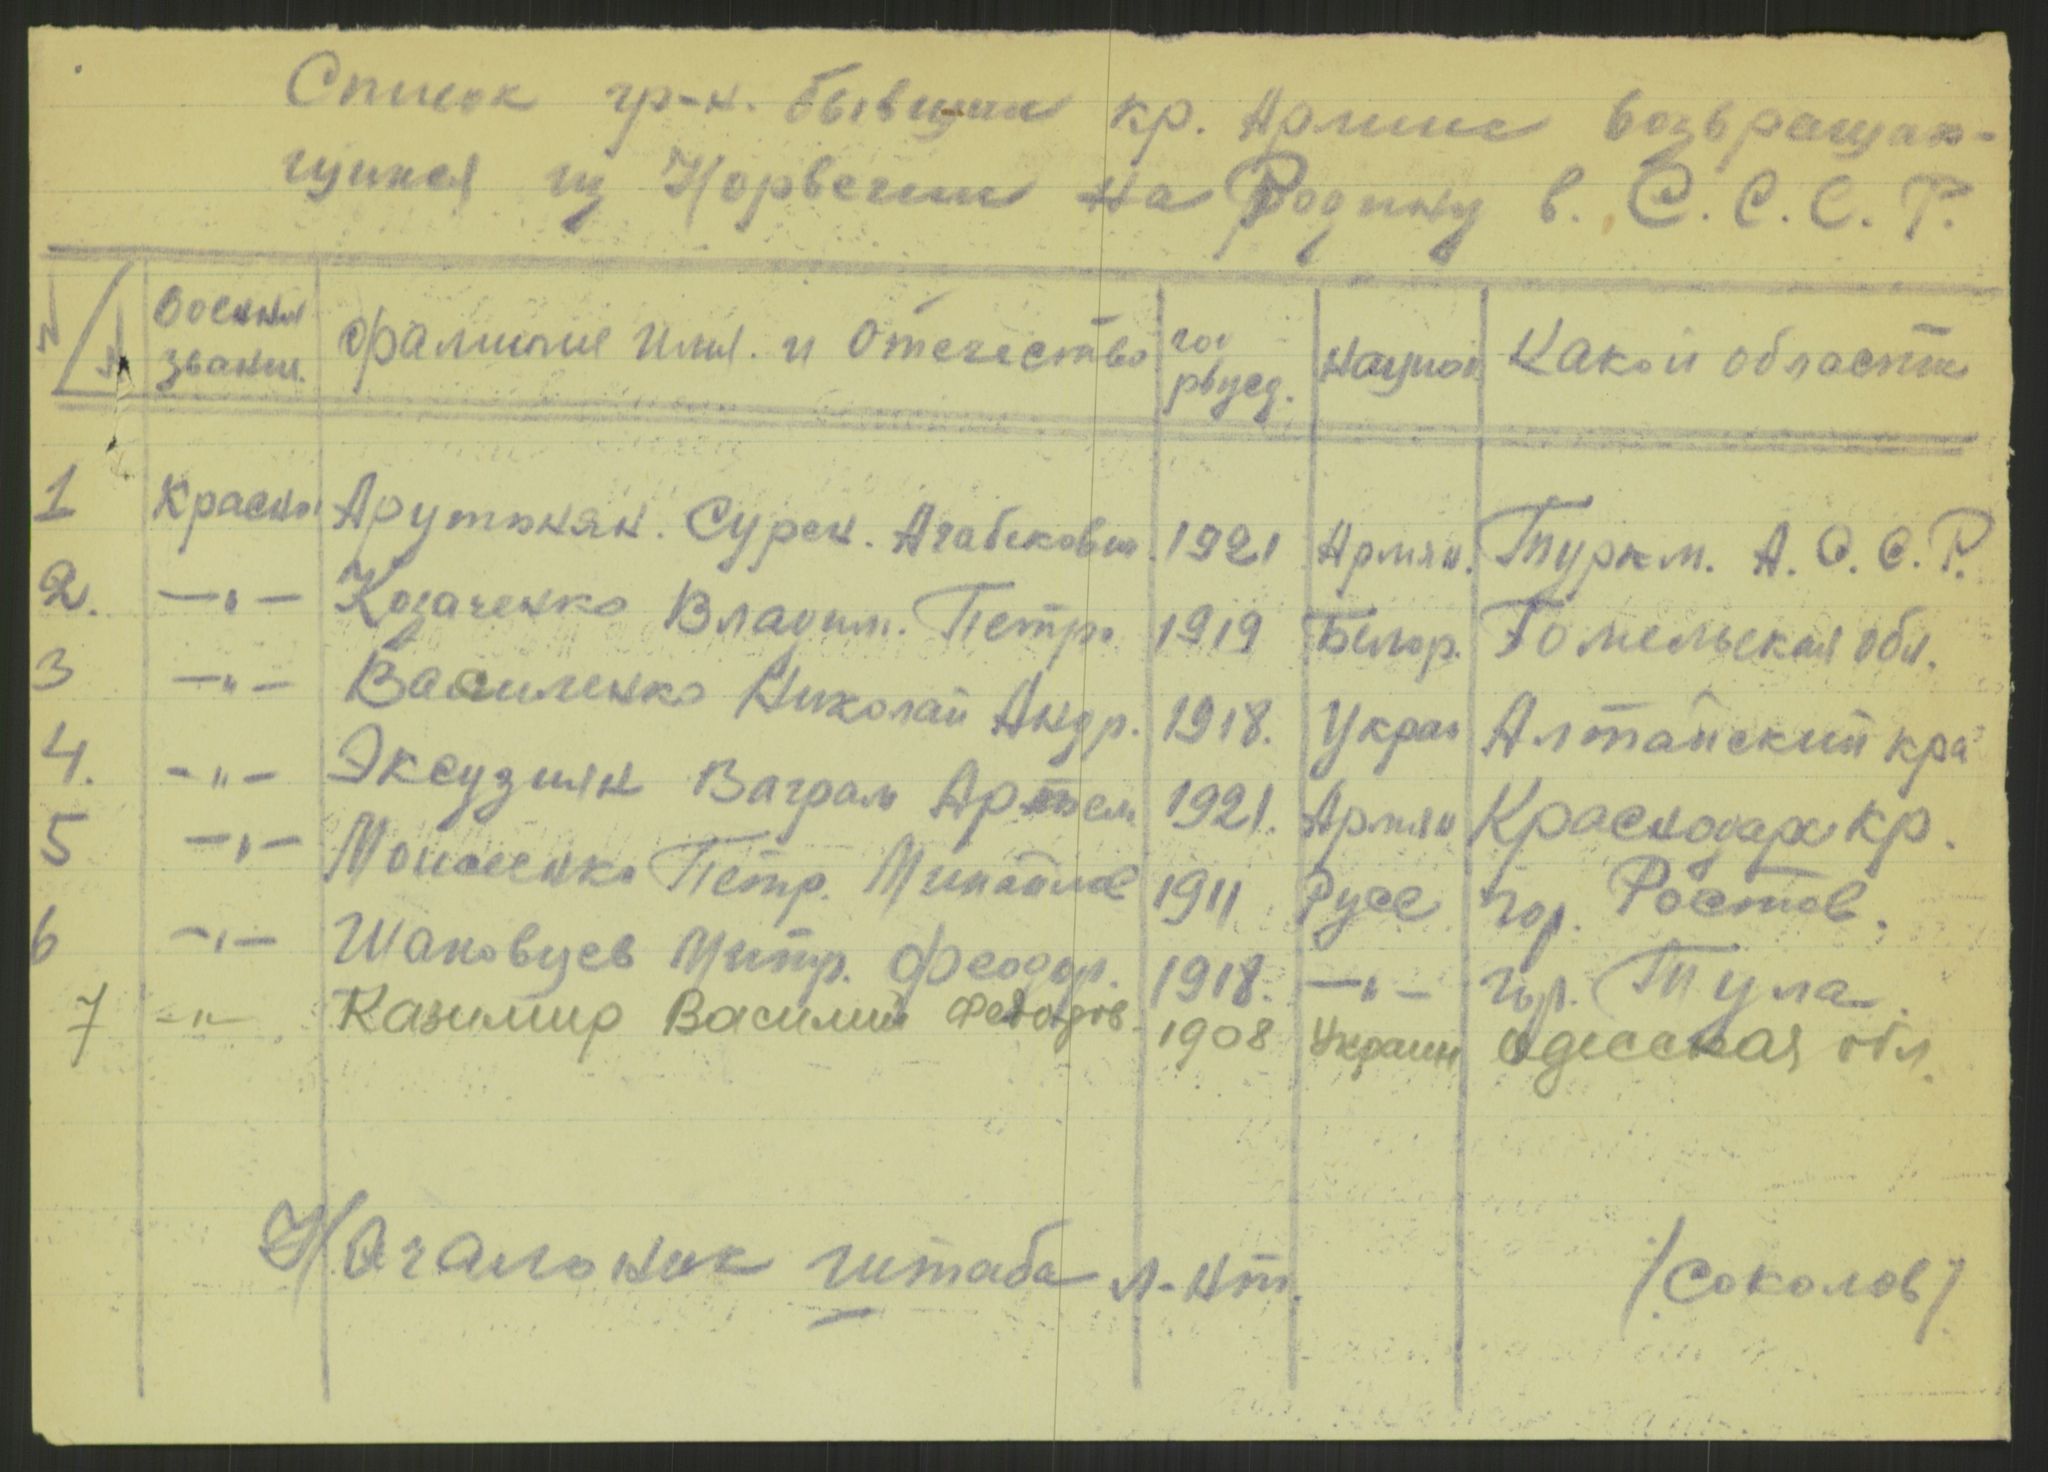 Список гр-н. бывших кр. Армие возвращаю-
щихся из Норвегии на Родину в. С. С. С. Р.
N/N Военная звание. Фамилие Имя. и Отечество год рожд. национ Какой области
1 Красно Арутюнян. Сурен. Агабекович. 1921 Армян. Туркм. А. С. С. Р.
2. —"— Козаченко Владим. Петр. 1919 Белор. Гомельская обл.
3 —"— Василенко Николай Андр. 1918. Украи Алтайский кра
4. —"— Эксузиян Ваграм Артем 1921. Армян Краснодар кр.
5 —"— Моисеенко Петр. Михайлов 1911 Русс гор. Ростов.
6 —"— Шаховцев Митр. Феодор. 1918. —"— гор. Тула.
7 —"— Казимир Василий Федоров. 1908 Украин Одесская обл.
Начальник штаба л-нт. /Соколов/